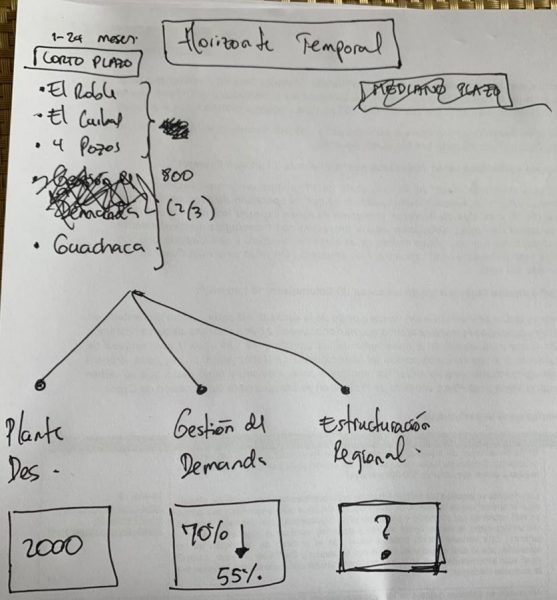 1-24 meses.
Horizonte Temporal
CORTO PLAZO
MEDIANO PLAZO
• El Roble
• El Curbal
• 4 Pozos
Gestión de
Demanda
800
(2/3)
• Guachaca
Planta
Des.
Gestión de
Demanda
Estructuración
Regional.
2000
70% ↓
55%.
?